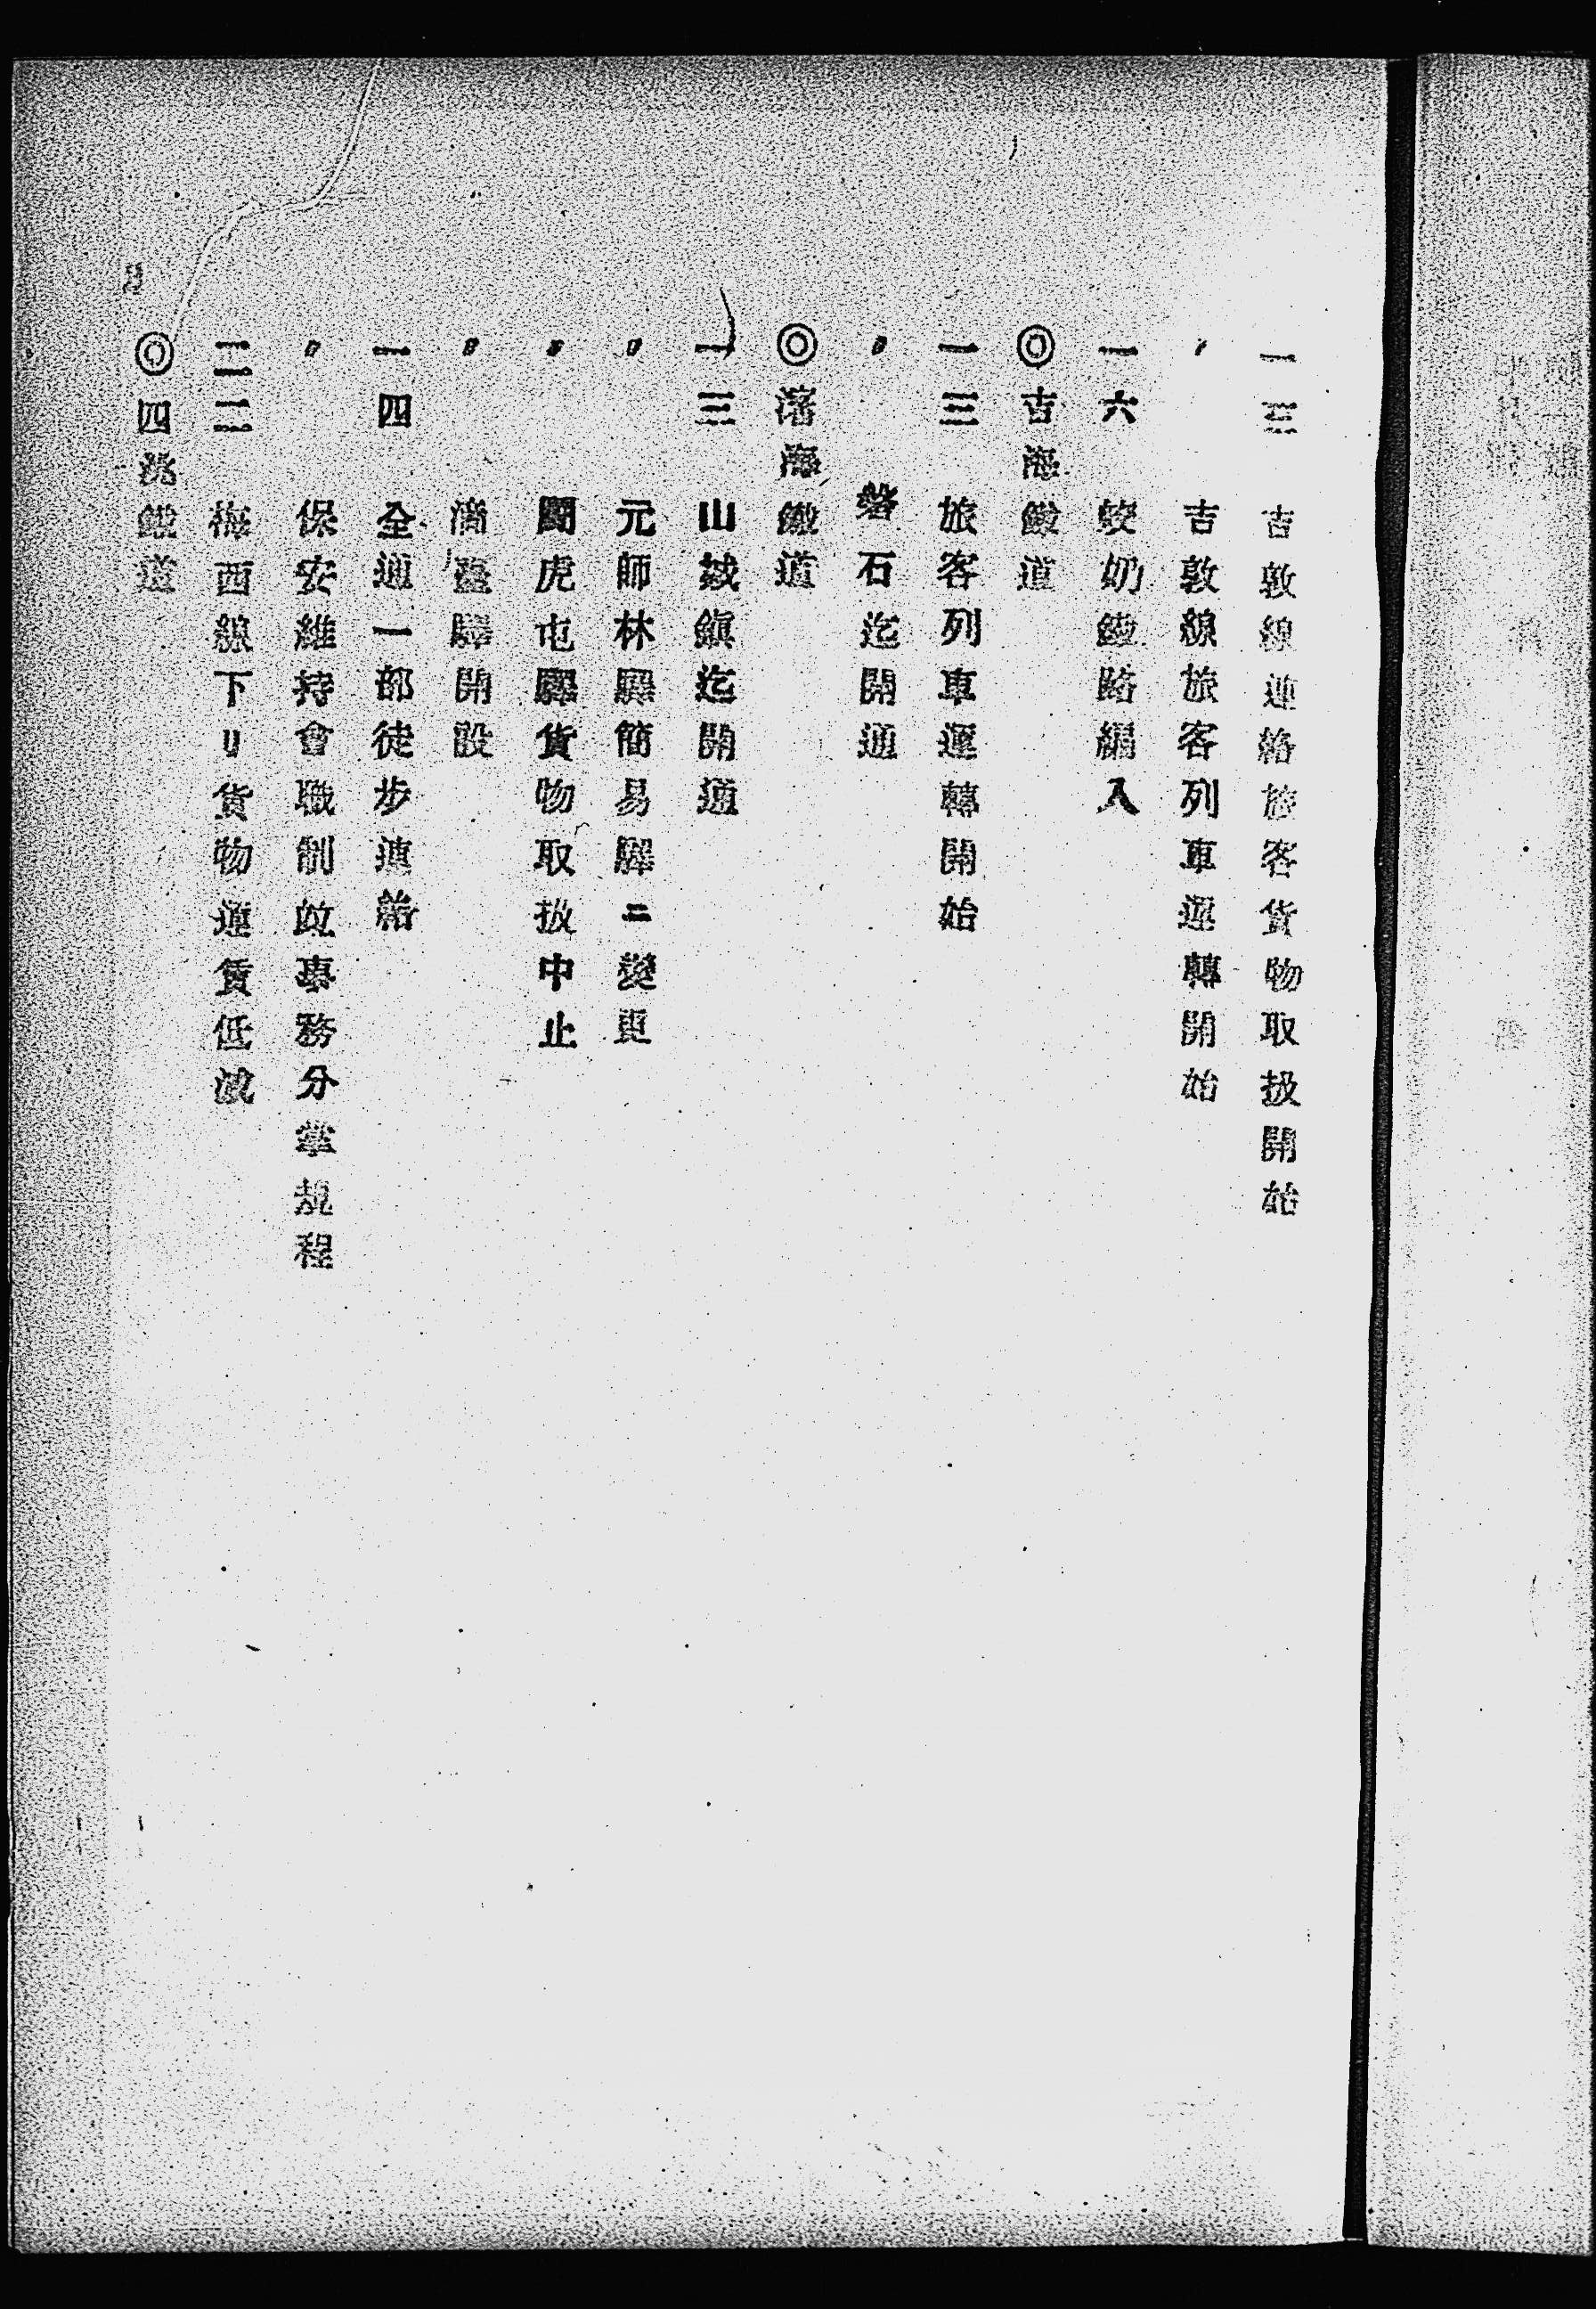 一三　吉敦線連絡旅客貨物取扱開始
〃　吉敦線旅客列車運轉開始
一六　蛟奶鐵路編入
◎吉海鐵道
一三　旅客列車運轉開始
〃　磐石迄開通
◎瀋海鐵道
一三　山城鎭迄開通
〃　元師林驛簡易驛ニ變更
〃　闞虎屯驛貨物取扱中止
〃　滴臺驛開設
一四　全通一部徒步連絡
〃　保安維持會職制竝事務分掌規程
二二　梅西線下リ貨物運賃低減
◎四洮鐵道